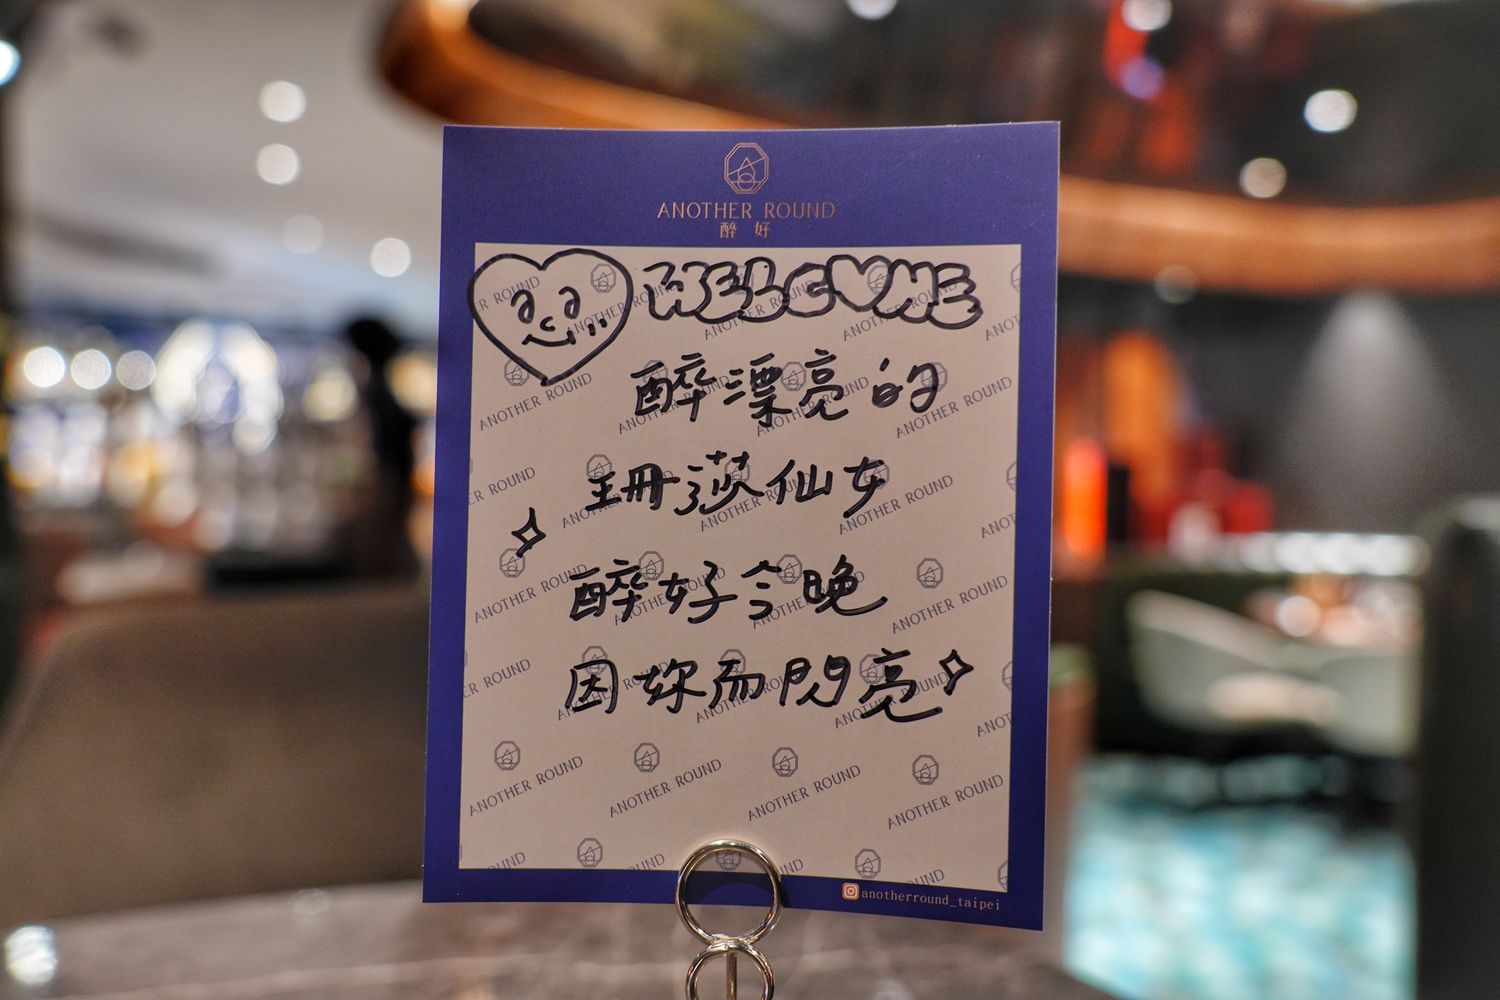 ANOTHER ROUND
醉 好
WELCOME
醉漂亮的
珊莎仙女
醉好今晚
因妳而閃亮
anotherround_taipei